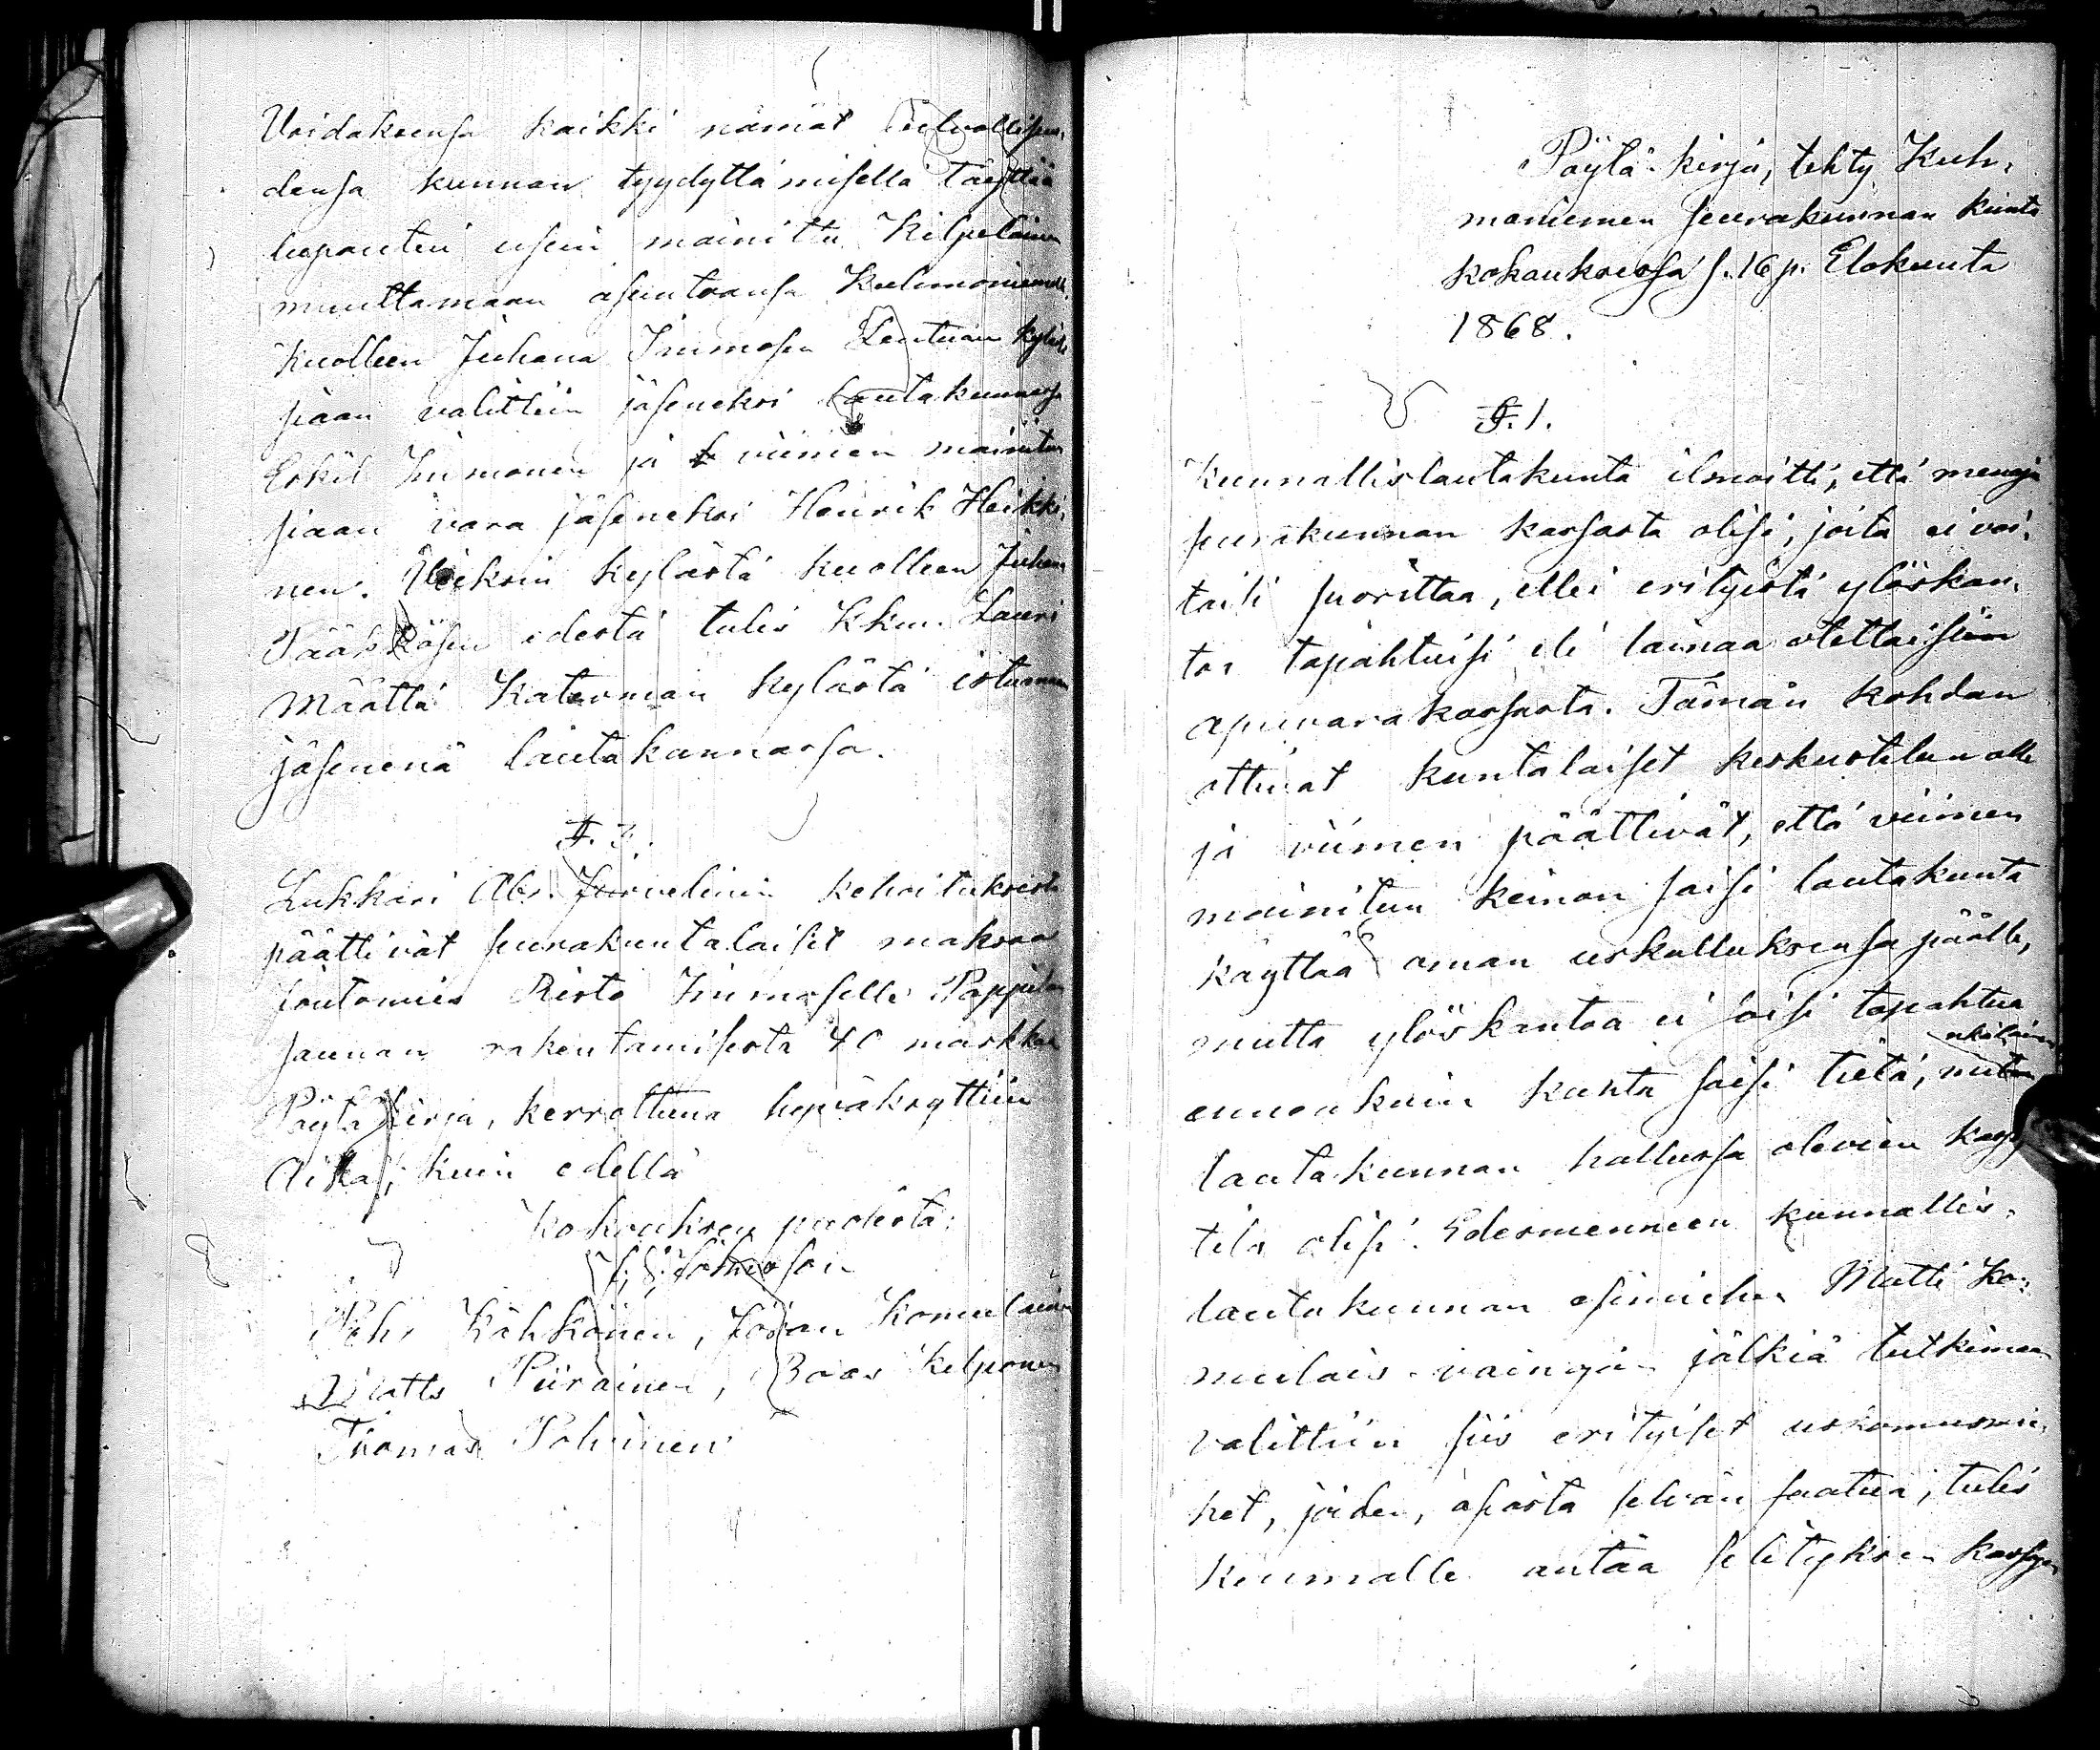 Voidaksensa kaikki nämät
densa kunnan tyydyttämisellä täyttää
lupautui usein mainittu Kilpeläinen
muuttamaan asuntoansa Kuhmoniemelle.
Kuolleen Juhana Immosen Lentuan kylästä
siaan valittiin jäseneksi Lautakunnassa
Eskil Immonen ja viimen mainitun
siaan vara jäseneksi Henrik Heikki-
nen. Vieksin kylästä kuolleen Juhana
Pääkkösen edestä tulis Kkm. Lauri
Määttä Katerman kylästä istumaan
jäsenenä lautakunnassa.
§. 3.
Lukkari Abr. Jurvelinin kehoituksesta
päättivät seurakuntalaiset maksaa
lautamies Risto Immoselle Pappilan
saunan rakentamisesta 40 markkaa
Pöytäkirja, kerrottuna hyväksyttiin
Aika, kuin edellä
Kokouksen puolesta:
Pehr Kähkönen, Johan Komulainen
Matts Piirainen, Boas Kelponen
Thomas Polvinen
Pöytä-kirja, tehty Kuh-
moniemen seurakunnan kunta
kokouksessa s. 16 p. Elokuuta
1868.
§. 1.
Kunnallislautakunta ilmoitti, että menoja
seurakunnan kassasta olisi, joita ei voi-
taisi suorittaa, ellei erityistä ylöskan-
toa tapahtuisi eli lainaa otettaisiin
apuvarakassasta. Tämän kohdan
ottivat kuntalaiset keskustelun alle
ja viimen päättivät, että viimen
mainitun keinon saisi lautakunta
käyttää oman uskalluksensa päälle,
mutta ylöskantoa ei saisi tapahtua
ennenkuin kunta saisi tietä, minkälainen
lautakunnan hallussa olevien kassan
tila olisi. Edesmenneen kunnallis-
lautakunnan esimiehen Matti Ko-
mulais-vainajan jälkiä tutkimaan
valittiin siis erityiset uskomusmie-
het, joiden, asiasta selvän saatua, tulis
kunnalle antaa selityksen kassan